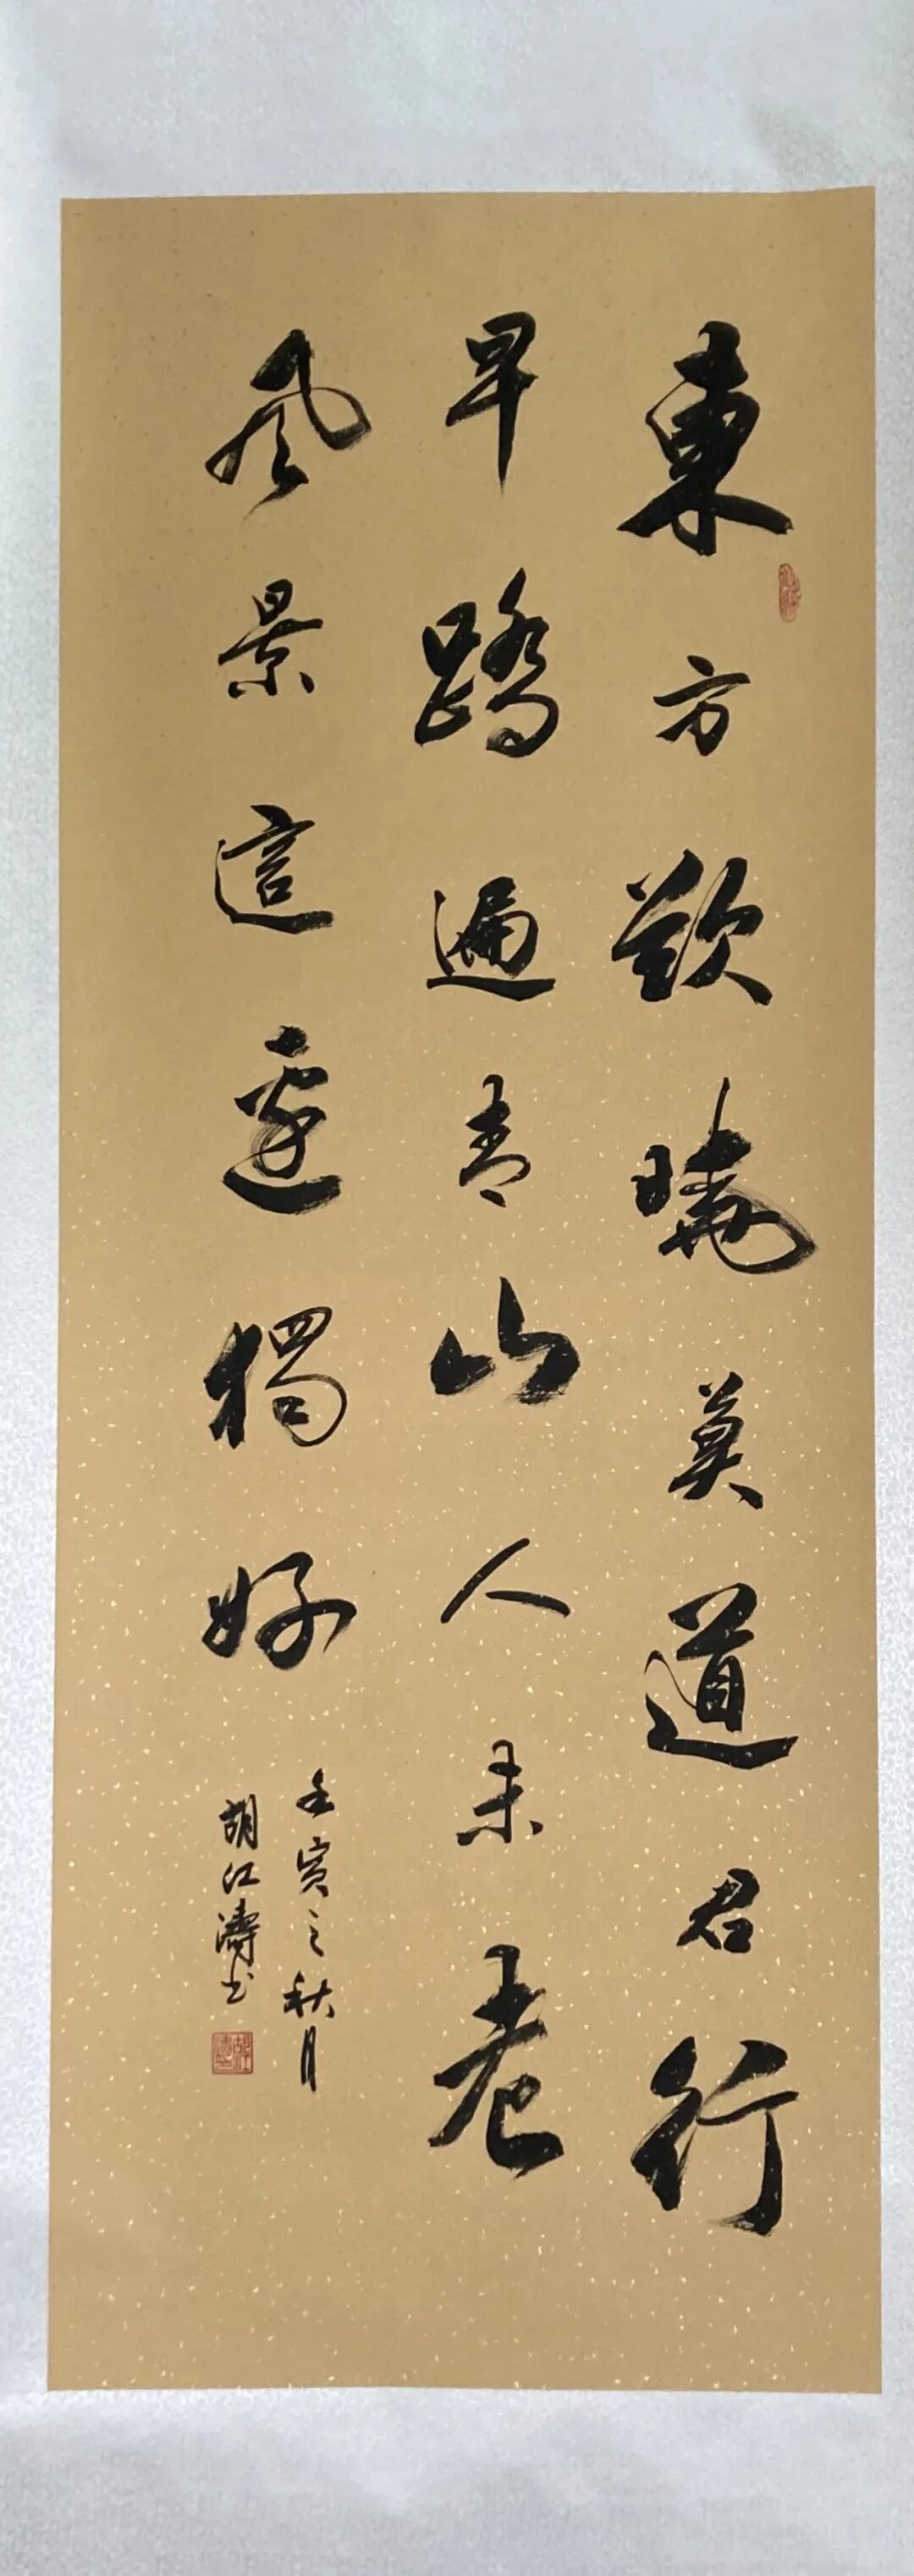 東方欲曉莫道君行
早踏遍青山人未老
風景這邊獨好
壬寅之秋月
胡江濤书